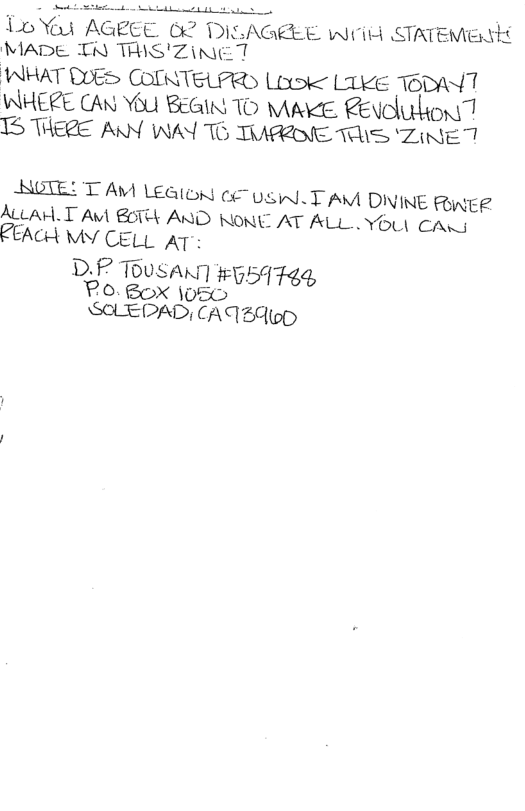 DO YOU AGREE OR DISAGREE WITH STATEMENTS
MADE IN THIS 'ZINE?
WHAT DOES COINTELPRO LOOK LIKE TODAY?
WHERE CAN YOU BEGIN TO MAKE REVOLUTION?
IS THERE ANY WAY TO IMPROVE THIS 'ZINE?
NOTE: I AM LEGION OF USW. I AM DIVINE POWER
ALLAH. I AM BOTH AND NONE AT ALL. YOU CAN
REACH MY CELL AT:
D.P. TOUSANT #G59788
P.O. BOX 1050
SOLEDAD, CA 93960